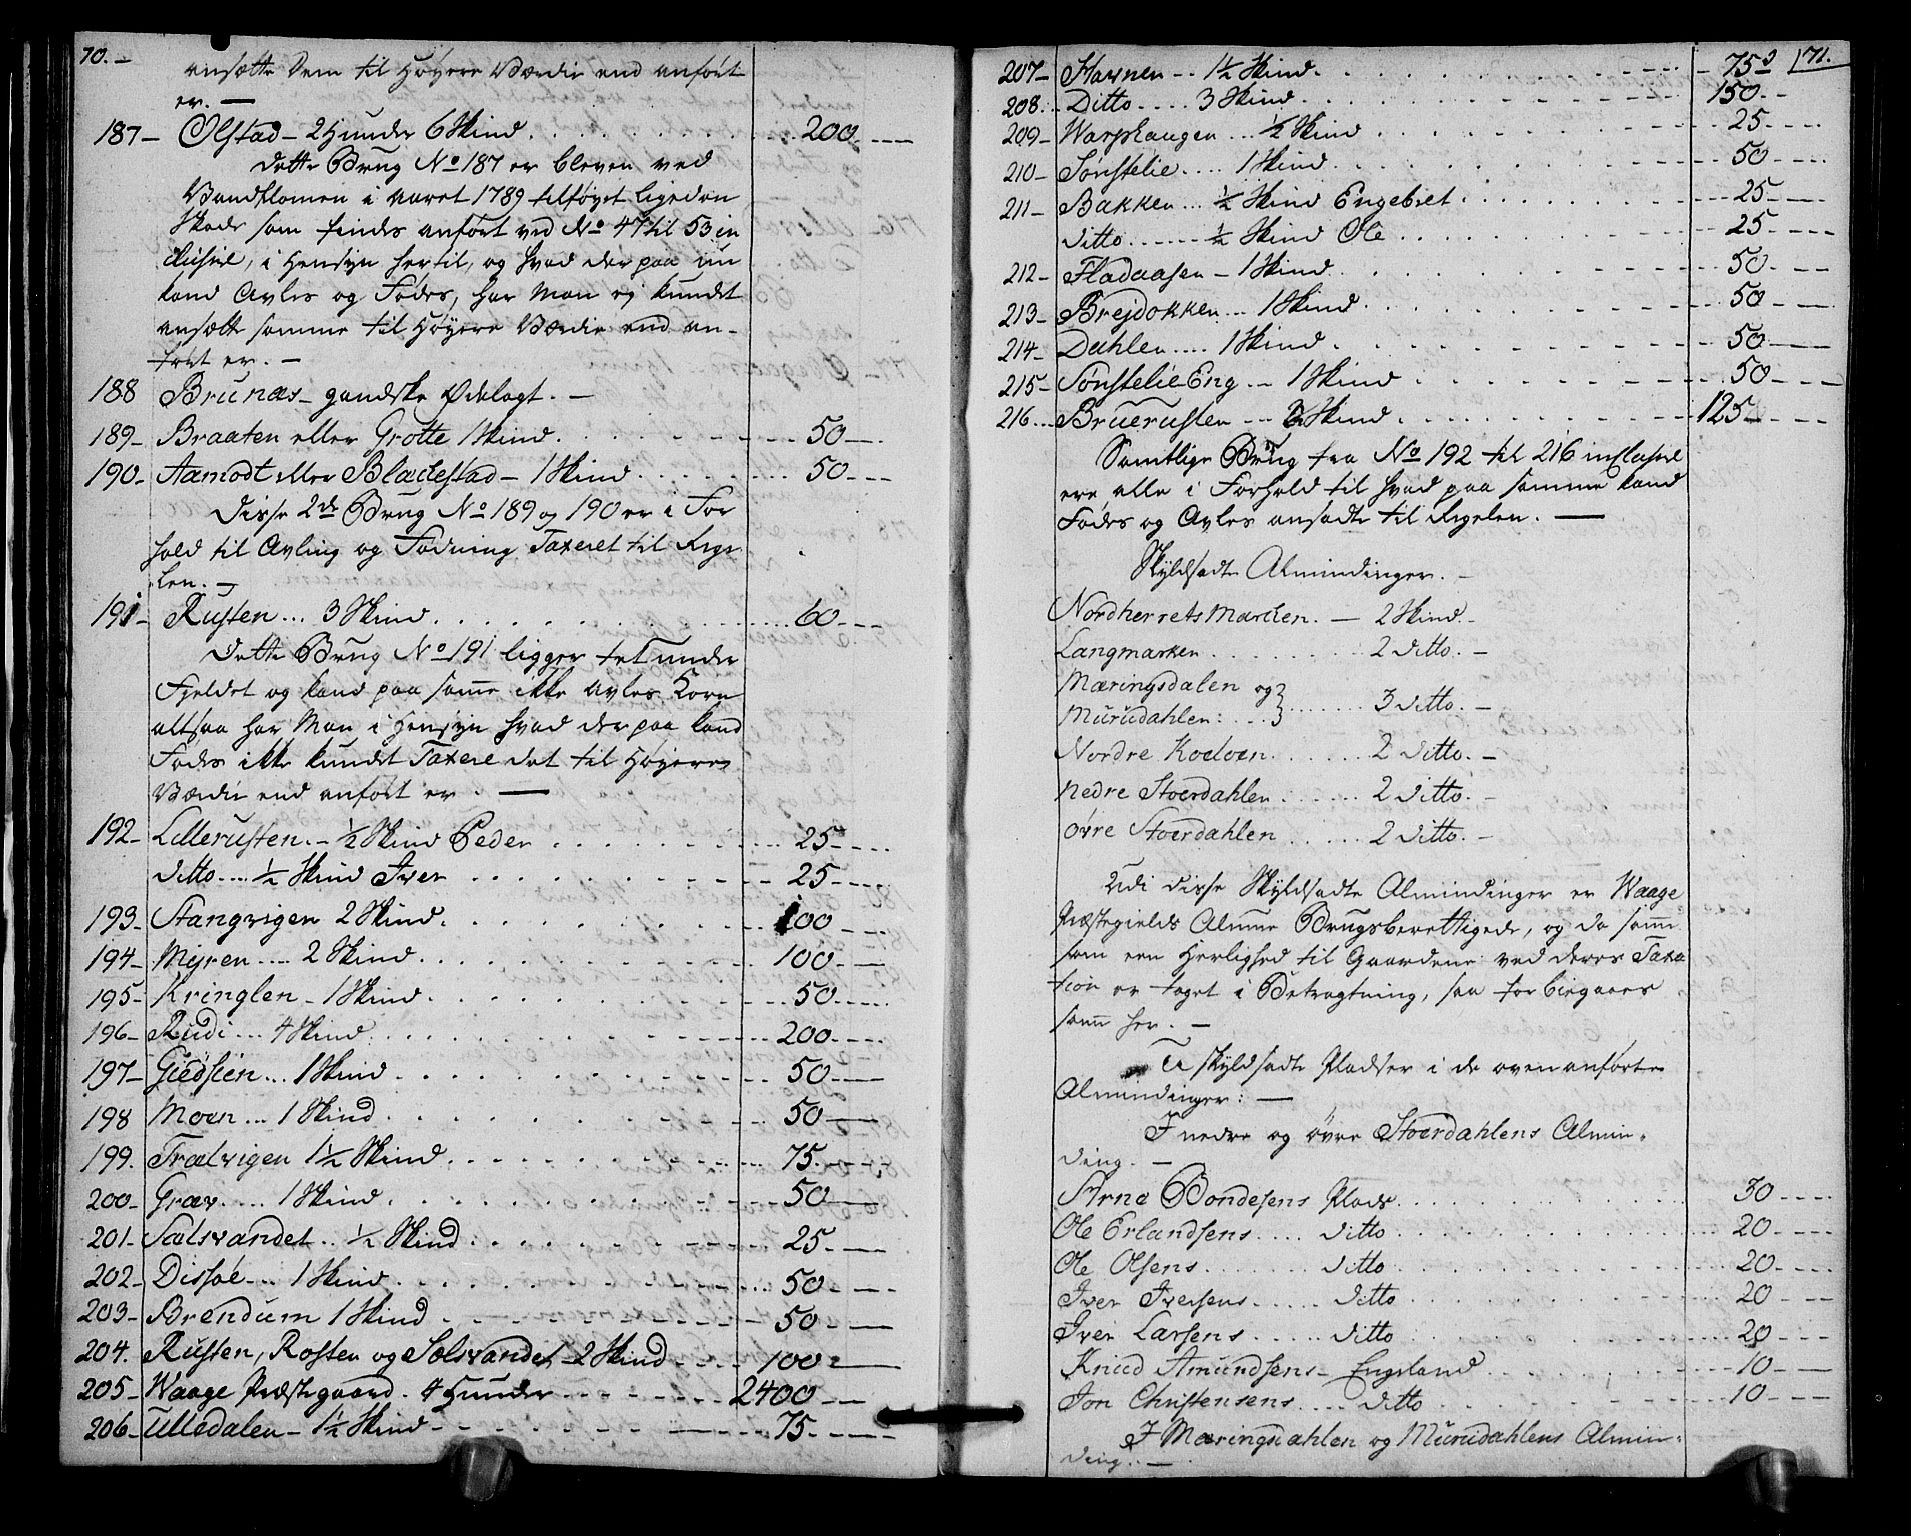 70. –
ansætte dem til Høyere Værdie end anført
er. —
187 – Olstad – 2 Hunder 6 Skind . . . . . . 200. - - -
Dette Brug No 187 er bleven ved
Vandflomen i Aaret 1789 tilføyet ligedan
Skade som findes anført ved No 47 til 53 in
clusive, i Hensyn hertil, og hvad der paa nu
kand Avles og Fødes, har Man ej kundet
ansætte samme til Høyere Værdie end an-
ført er. –
188 Brunæs – gandske Ødelagt. –
189 – Braaten eller Grotte 1 Skind . . . . . 50 –
190 – Aamodt eller Blackestad – 1 Skind . . . . . 50 - - -
Disse 2de Brug No 189 og 190 er i For
hold til Avling og Fødning Taxeret til Rege
len. –
191 – Rusten ... 3 Skind . . . . . . 60 - - -
Dette Brug No 191 ligger tet under
Fjeldet og kand paa same ikke Avles Korn
altsaa har Man i Hensyn hvad der paa kand
Fødes ikke kundet Taxere det til Høyere
Værdie end anført er. —
192 – Lillerusten. – ½ Skind Peder . . . . . 25 - - -
ditto .... ½ Skind Iver . . . . . 25 - - -
193 – Stangvigen 2 Skind . . . . . 100 - - -
194 – Myren .... 2 Skind . . . . . 100 - - -
195 – Kringlen – 1 Skind . . . . . 50 - - -
196 – Rudi ... 4 Skind . . . . . 200 - - -
197 – Giedsien ... 1 Skind . . . . . 50 - - -
198 Moen ... 1 Skind . . . . . 50 - - -
199. Trælvigen 1½ Skind . . . . . 75 - - -
200 – Græv ..... 1 Skind . . . . . 50 - - -
201 – Sælsvandet .. ½ Skind . . . . . 25 - - -
202 – Dissøe ... 1 Skind . . . . . 50 - - -
203 – Brendum 1 Skind . . . . . 50 - - -
204. Rusten, Rosten og Solsvandet – 2 Skind . . . . 100 - - -
205 – Waage Præstegaard. 4 Hunder . . . . . 2400 - - -
206 – Ulledalen – 1½ Skind . . . . . 75 - - -
71.
207 – Havnen – . 1½ Skind . . . . . 75
208 . . Ditto .... 3 Skind . . . . . 150 - -
209 – Warphaugen ... ½ Skind . . . . . 25 - - -
210 – Sønstelie .... 1 Skind . . . . . 50 - - -
211 – Bakken ... ½ Skind Engebret . . . . . 25 - - -
ditto ...... ½ Skind Ole . . . . . 25 - - -
212 – Fladaasen – 1 Skind . . . . . 50 - - -
213 – Brejdokken ... 1 Skind . . . . . 50 - - -
214 – Dahlen .... 1 Skind . . . . . 50 - - -
215 – Sønstelie Eng .. – 1 Skind . . . . . 50 - - -
216 ... Bruerusten ... Skind . . . . . 125 - - -
Samtlige Brug fra No 192 til 216 inclusive
ere alle i Forhold til hvad paa samme kand
Fødes og Avles ansadte til Regelen. —
Skyldsadte Almindinger. –
Nordherrets Marcken. – 2 Skind –
Langmarken . . . . . 2 ditto. –
Mæringsdalen og
Murudahlen: . . . } . . . . 3 ditto. –
Nordre Koeloen . . . . . 2 ditto. –
nedre Stoerdahlen . . . . . 2 ditto. –
øvre Stoerdahlen . . . . . 2 ditto. –
Udi disse Skyldsadte Almindinger er Waage
Præstegields Almue Brugsberettigede, og da same
som een Herlighed til Gaardene ved deres Taxa
tion er taget i Betragtning, saa forbiegaaes
same her. –
U skyldsadte Pladser i de ovenanførte
Almindinger: —
I nedre og øvre Stoerdahlens Almin-
ding. –
Arne Bondesens Plads . . . . . 30 - - -
Ole Erlandsens .... ditto . . . . . 20 - - -
Ole Olsens ...... ditto . . . . . 20 - - -
Iver Iversens ..... ditto . . . . . 20 - - -
Iver Larsens ..... ditto . . . . . 20 - - -
Knud Amundsens – Engeland . . . . . 10 - - -
Jon Christensens .... ditto . . . . . 10 - - -
I Mæringsdahlen og Murudahlens Almin-
ding. . –